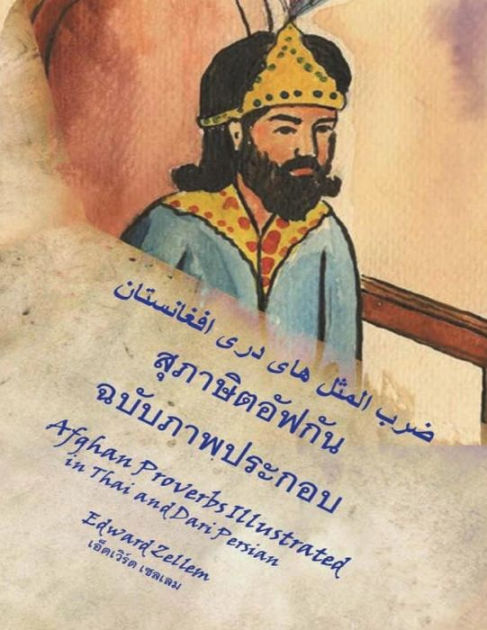 ضرب المثل های دری افغانستان
สุภาษิตอัฟกัน
ฉบับภาพประกอบ
Afghan Proverbs Illustrated
in Thai and Dari Persian
Edward Zellem
เอ็ดเวิร์ด เซลเลม